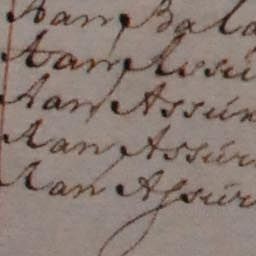 Aan Bala
Aan Assu
Aan Assúr
Aan Assúr
Aan Assúr